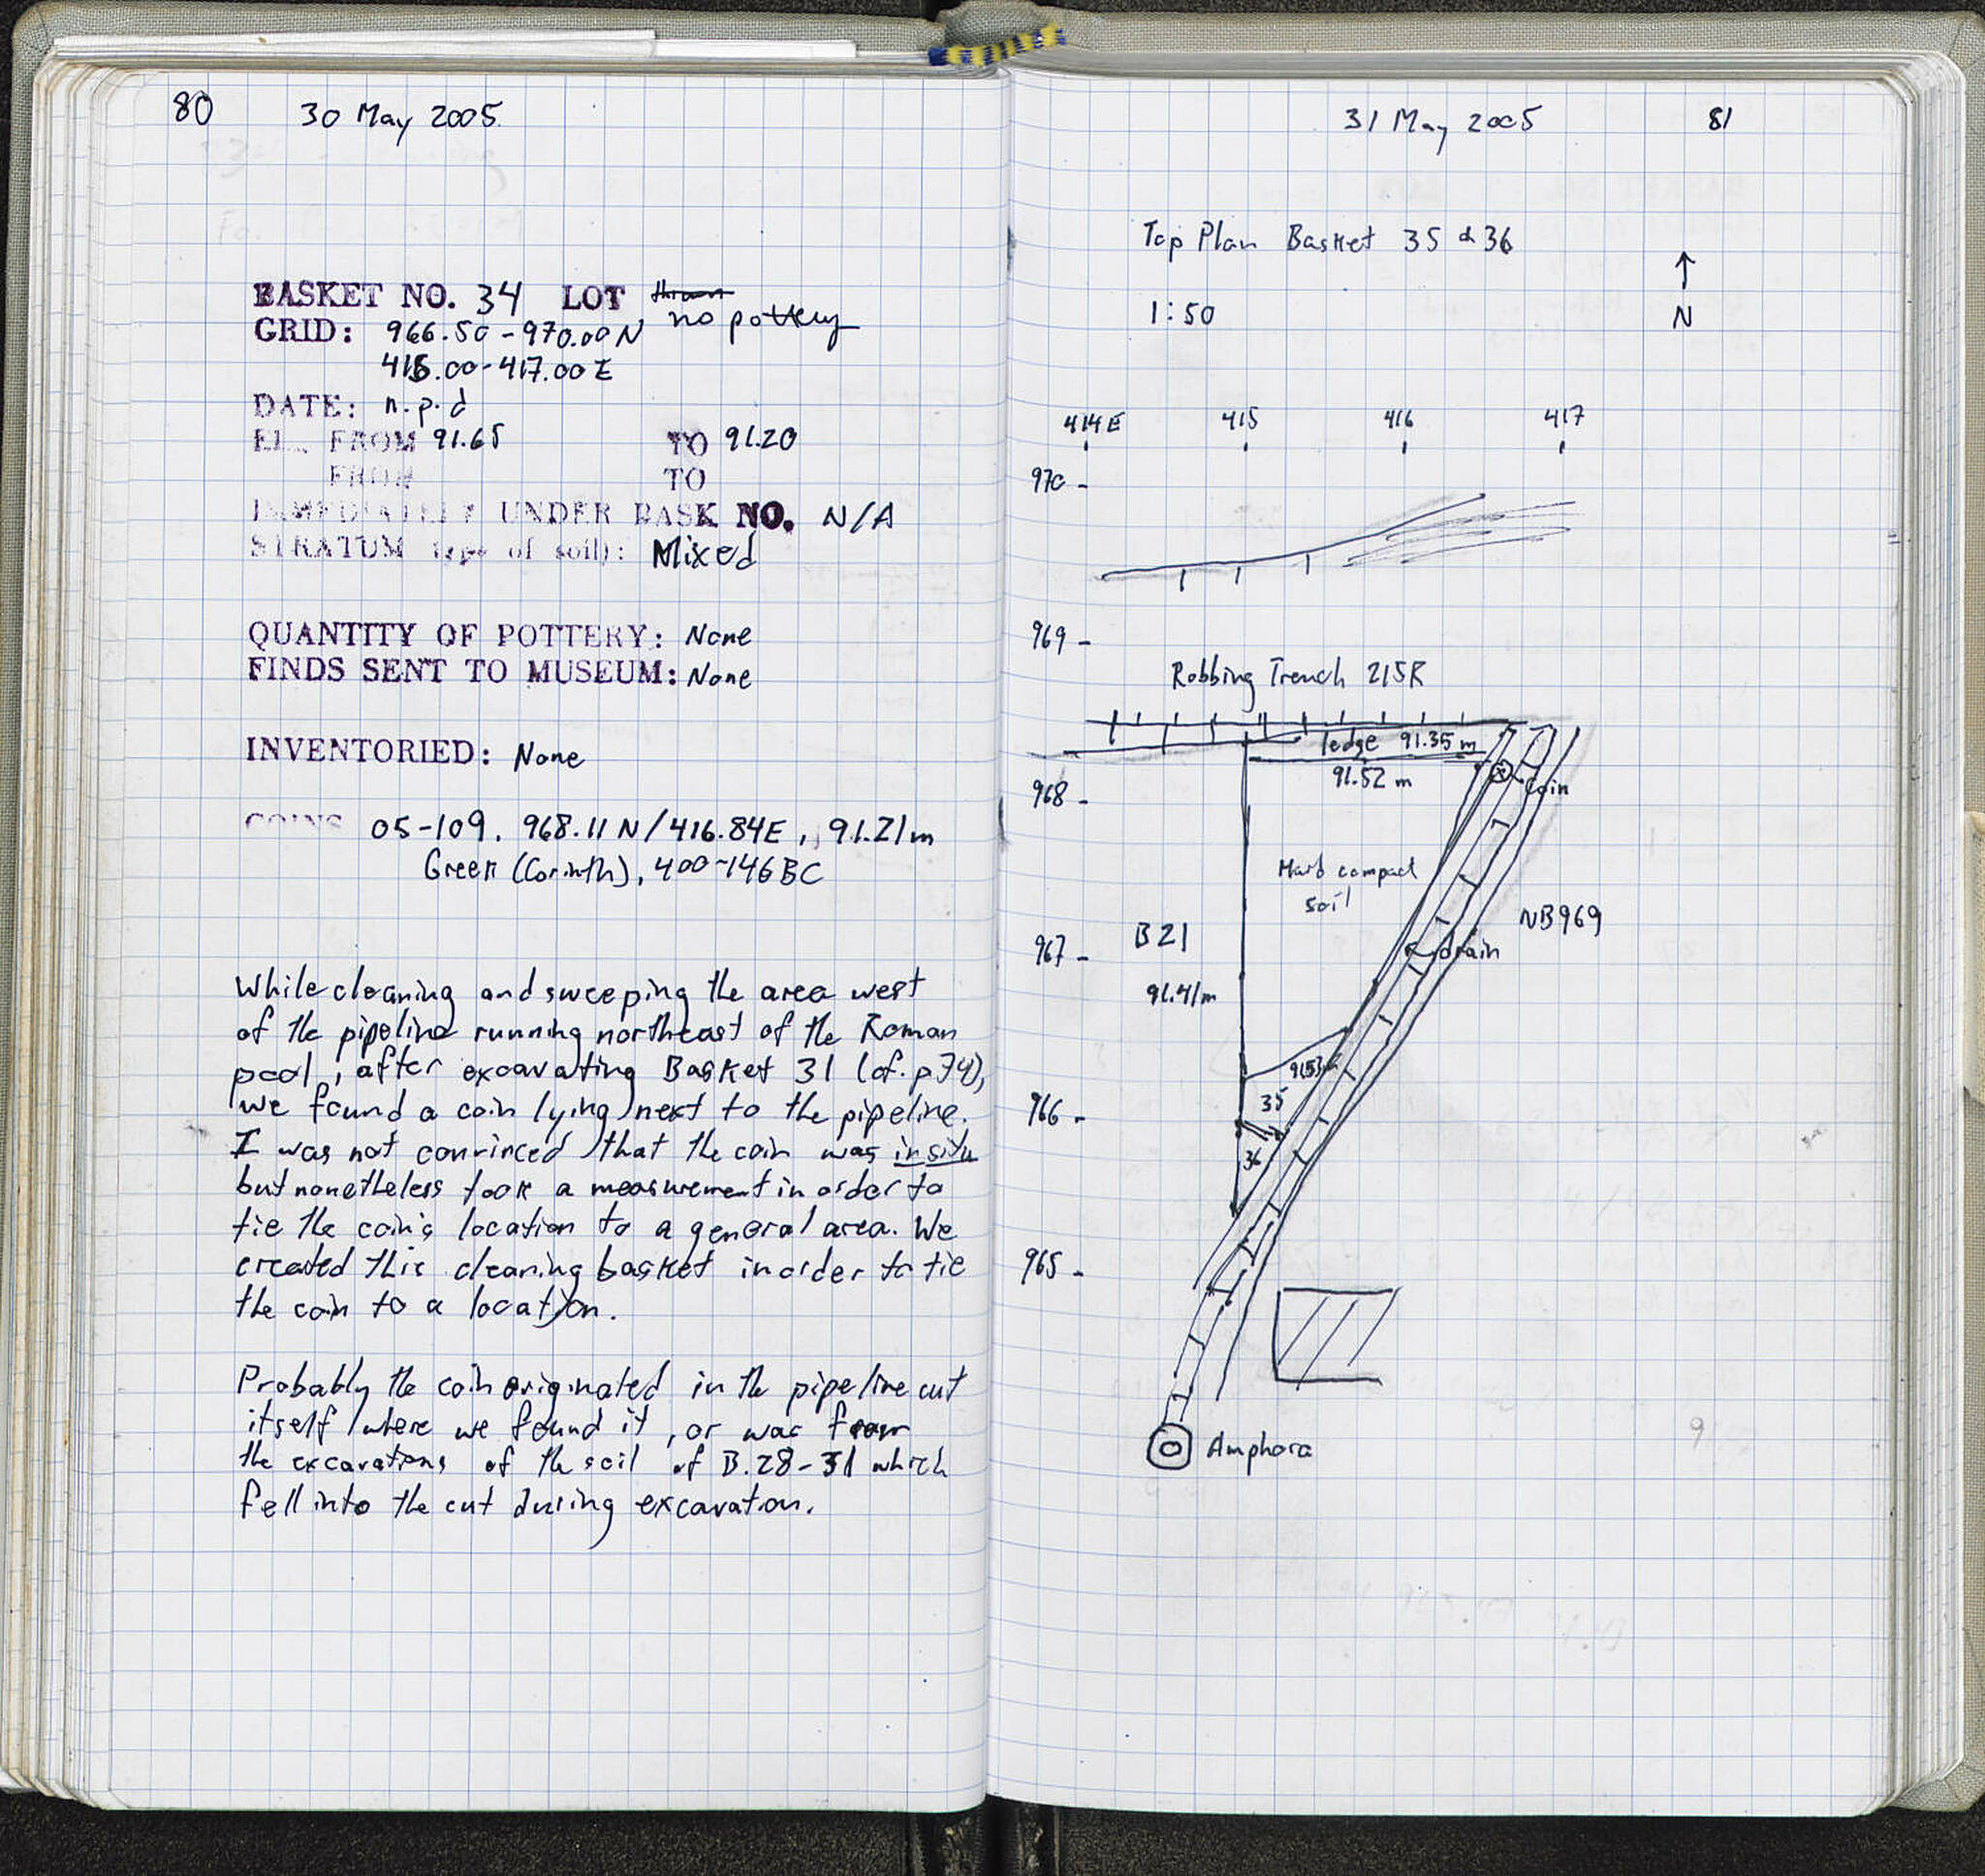 80 30 May 2005
BASKET NO. 34 LOT
no pottery
GRID: 966.50-970.00 N
415.00-417.00 E
DATE: n.p.d
EL. FROM 91.65 TO 91.20
FROM TO
IMMEDIATELY UNDER BASK NO. N/A
STRATUM type of soil): Mixed
QUANTITY OF POTTERY: None
FINDS SENT TO MUSEUM: None
INVENTORIED: None
COINS 05-109. 968.11 N/416.84E, 91.21m
Greek (Corinth), 400-146 BC
While cleaning and sweeping the area west
of the pipeline running northeast of the Roman
pool, after excavating Basket 31 (cf. p 74),
we found a coin lying next to the pipeline.
I was not convinced that the coin was in situ
but nonetheless took a measurement in order to
tie the coin's location to a general area. We
created this cleaning basket in order to tie
the coin to a location.
Probably the coin originated in the pipeline cut
itself where we found it, or was from
the excavations of the soil of B.28-31 which
fell into the cut during excavation.
31 May 2005 81
Top Plan Basket 35 & 36
1:50
N
414E 415 416 417
970
969
Robbing Trench 215R
ledge 91.35 m
91.52 m
968
Coin
Hard compact
soil
NB969
B21
967
drain
91.41m
35
966
36
965
Amphora